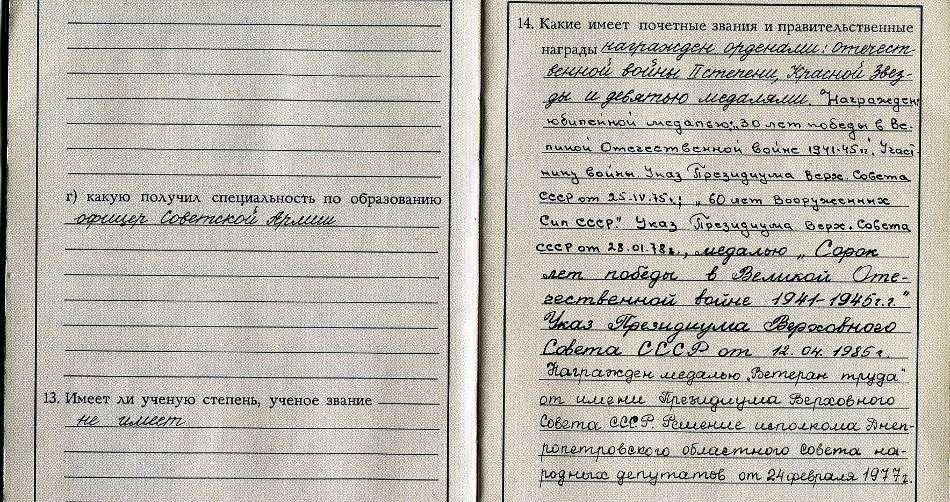 г) какую получил специальность по образованию
офицер Советской Армии
13. Имеет ли ученую степень, ученое звание
не имеет
14. Какие имеет почетные звания и правительственные
награды награжден орденами: Отечест-
венной войны II степени, Красной Звез-
ды и девятью медалями. "Награжден
юбилейной медалью: „30 лет победы в Ве-
ликой Отечественной войне 1941-45гг". Участ-
нику войны. Указ Президиума Верх. Совета
СССР от 25.IV.75г; „60 лет Вооруженных
Сил СССР". Указ Президиума Верх. Совета
СССР от 28.01.78г., медалью „Сорок
лет победы в Великой Оте-
чественной войне 1941-1945г.г."
Указ Президиума Верховного
Совета СССР от 12.04.1985г.
Награжден медалью „Ветеран труда"
от имени Президиума Верховного
Совета СССР. Решение исполкома Днеп-
ропетровского областного Совета на-
родных депутатов от 24 февраля 1977г.